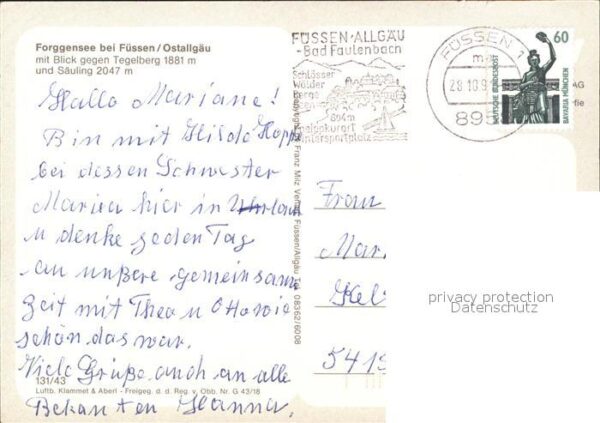 Forggensee bei Füssen/Ostallgäu
mit Blick gegen Tegelberg 1881 m
und Säuling 2047 m
Hallo Mariane!
Bin mit Hilde Hopp
bei dessen Schwester
Mariea hier in Urlaub
u denke jeden Tag
an unßere gemeinsame
Zeit mit Theo u Ottowie
schön das war.
Viele Grüße auch an alle
Bekanten Hanna.
131/43
Luftb. Klammet & Aberl - Freigeg. d. d. Reg. v. Obb. Nr. G 43/18
Franz Milz Verlag Füssen/Allgäu Tel. 08362/6008
FÜSSEN·ALLGÄU
-Bad Faulenbach
Schlösser
Wälder
Berge
804m
Kneippkurort
Wintersportplatz
FÜSSEN 1
28.10.9
895
60
DEUTSCHE BUNDESPOST
BAVARIA MÜNCHEN
AG
fie
Frau
Mar
Kel
5415
privacy protection
Datenschutz